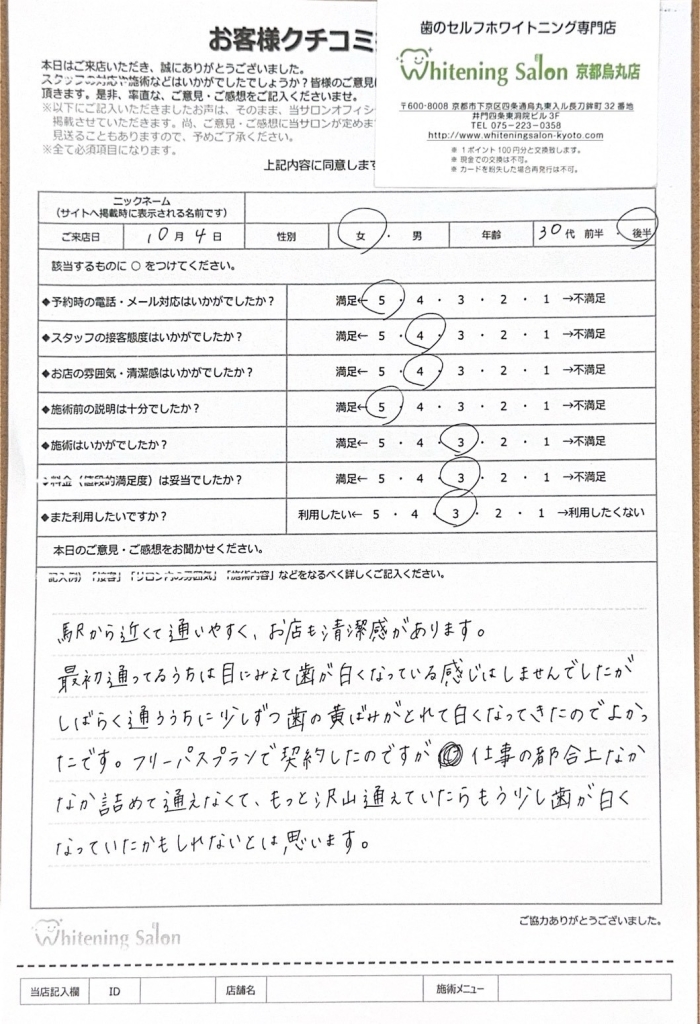 お客様クチコミ
本日はご来店いただき、誠にありがとうございました。
スタッフの対応や施術などはいかがでしたでしょうか？皆様のご意見
頂きます。是非、率直な、ご意見・ご感想をご記入くださいませ。
※以下にご記入いただきましたお声は、そのまま、当サロンオフィシ
掲載させていただきます。尚、ご意見・ご感想に当サロンが定めま
見送ることもありますので、予めご了承ください。
※全て必須項目になります。
上記内容に同意しま
歯のセルフホワイトニング専門店
Whitening Salon 京都烏丸店
〒600-8008 京都市下京区四条通烏丸東入ル長刀鉾町 32 番地
井門四条東洞院ビル 3F
TEL 075-223-0358
http://www.whiteningsalon-kyoto.com
※ 1ポイント100円分と交換致します。
※ 現金での交換は不可。
※ カードを紛失した場合再発行は不可。
ニックネーム
（サイトへ掲載時に表示される名前です）
ご来店日 10月 4日 性別 女 ・ 男 年齢 30代 前半 ・ 後半
該当するものに ○ をつけてください。
◆予約時の電話・メール対応はいかがでしたか？ 満足← 5 ・ 4 ・ 3 ・ 2 ・ 1 →不満足
◆スタッフの接客態度はいかがでしたか？ 満足← 5 ・ 4 ・ 3 ・ 2 ・ 1 →不満足
◆お店の雰囲気・清潔感はいかがでしたか？ 満足← 5 ・ 4 ・ 3 ・ 2 ・ 1 →不満足
◆施術前の説明は十分でしたか？ 満足← 5 ・ 4 ・ 3 ・ 2 ・ 1 →不満足
◆施術はいかがでしたか？ 満足← 5 ・ 4 ・ 3 ・ 2 ・ 1 →不満足
◆料金（値段的満足度）は妥当でしたか？ 満足← 5 ・ 4 ・ 3 ・ 2 ・ 1 →不満足
◆また利用したいですか？ 利用したい← 5 ・ 4 ・ 3 ・ 2 ・ 1 →利用したくない
本日のご意見・ご感想をお聞かせください。
記入例）「接客」「サロン内の雰囲気」「施術内容」などをなるべく詳しくご記入ください。
駅から近くて通いやすく、お店も清潔感があります。
最初通ってるうちは目にみえて歯が白くなっている感じはしませんでしたが
しばらく通ううちに少しずつ歯の黄ばみがとれて白くなってきたのでよかっ
たです。フリーパスプランで契約したのですが 仕事の都合上なか
なか詰めて通えなくて、もっと沢山通えていたらもう少し歯が白く
なっていたかもしれないとは思います。
ご協力ありがとうございました。
Whitening Salon
当店記入欄 ID 店舗名 施術メニュー